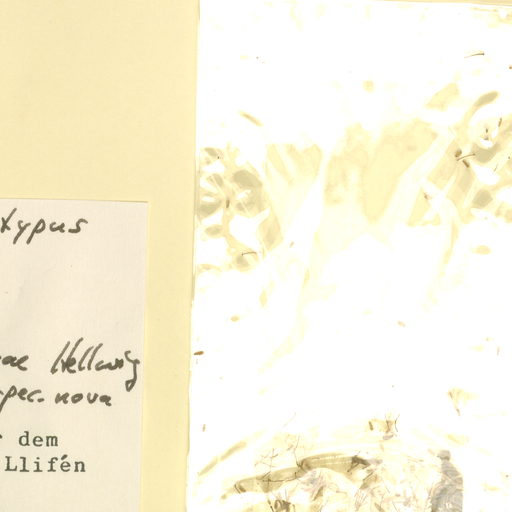 typus
ae Hellwig
spec. nova
r dem
Llifén